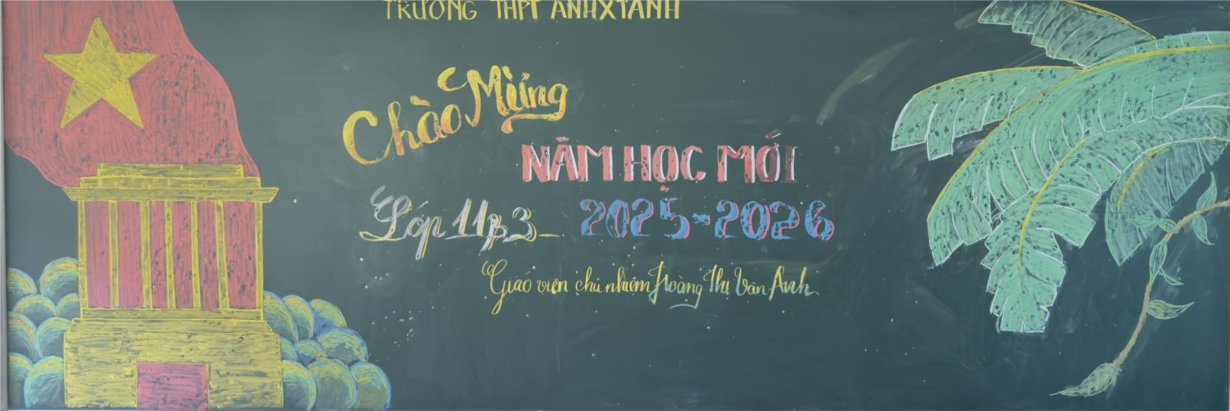 TRƯỜNG THPT ANHXTANH
Chào Mừng
NĂM HỌC MỚI
Lớp 11B3
2025-2026
Giáo viên chủ nhiệm Hoàng Thị Vân Anh